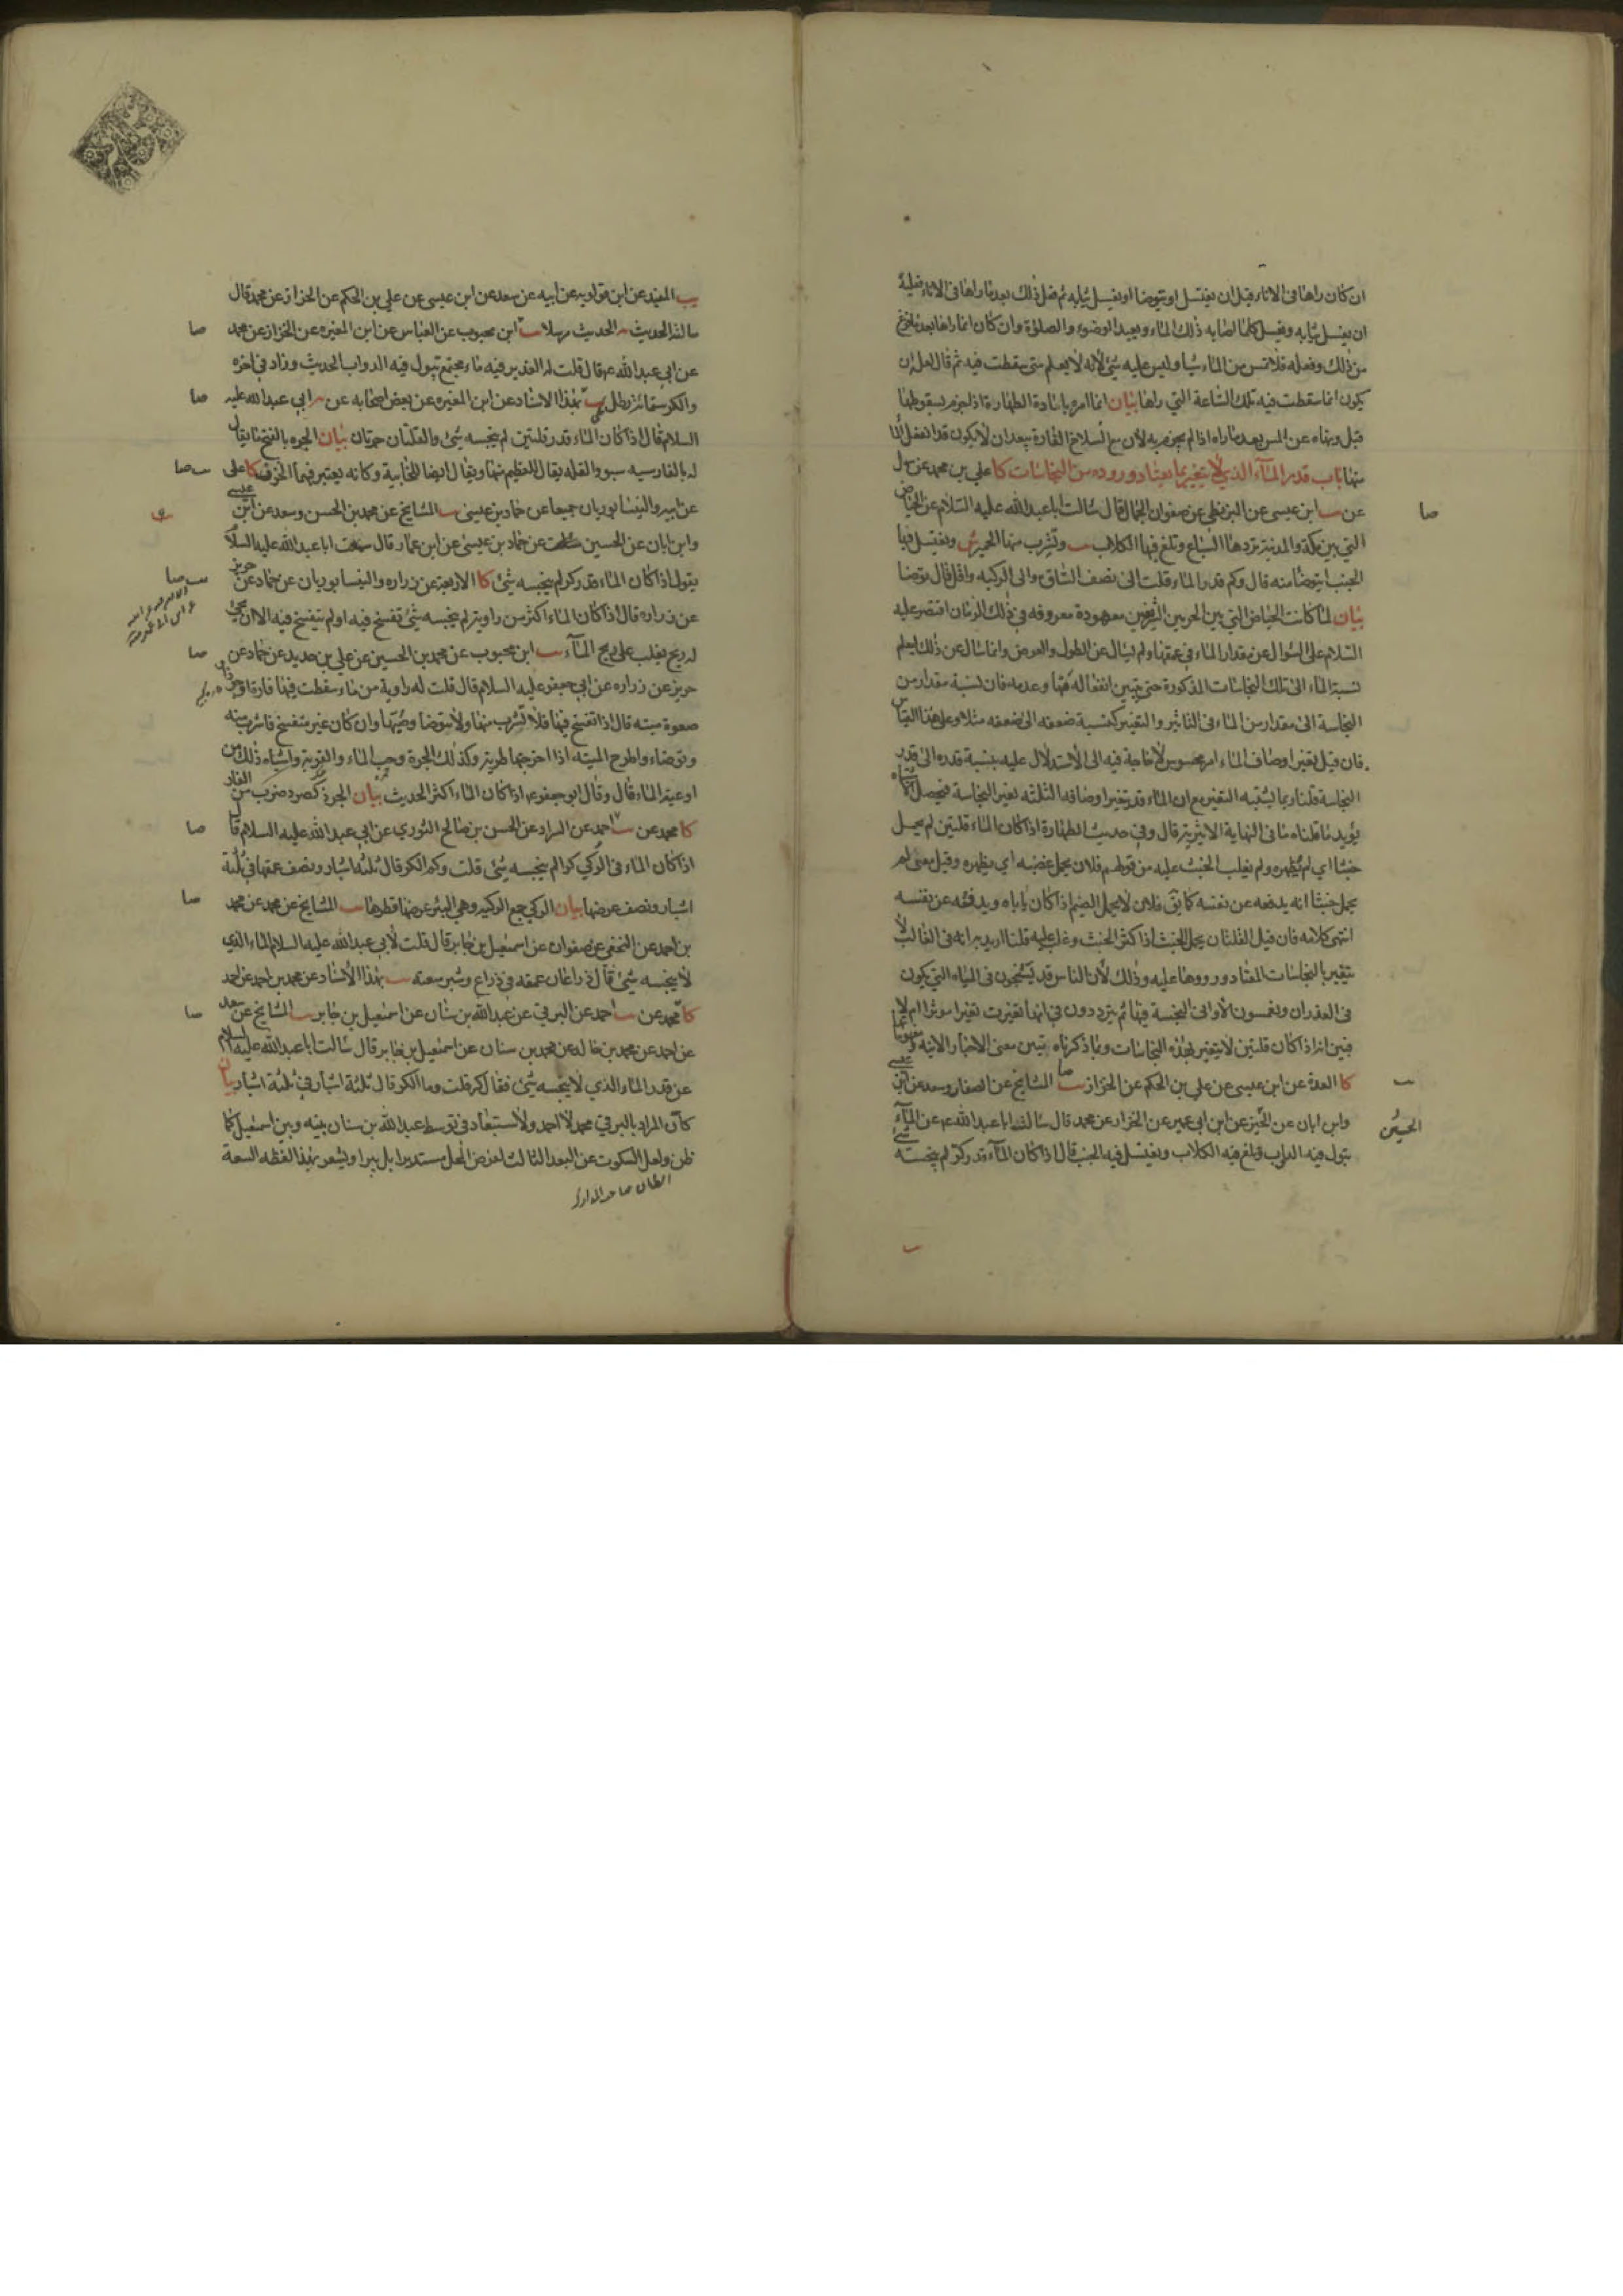 ان كان راها فى الاناء قبل ان يغتسل او يتوضا او يغسل ثيابه ثم فعل ذلك بعد ما راها فى الاناء فعليه
ان يغسل ثيابه ويغسل كلما اصابه ذلك الماء ويعيد الوضوء والصلوة وان كان انما راها بعد ما فرغ
من ذلك وفعله فلا تمس من الماء شيا وليس عليه شئ لانه لا يعلم متى سقطت فيه ثم قال لعل ان
يكون انما سقطت فيه تلك الساعة التي راها بيان انما امره باعادة الطهارة اذا جزم بسقوطها
قبل ونهاه عن المس بعد ما راه اذا لم يجزم به لان
منها باب قدر الماء الذي لا يتغير بما يعتاد وروده من النجاسات كا علي بن محمد عن سهل
عن ىب ابن عيسى عن البزنطي عن صفوان الجمال قال سالت ابا عبد الله عليه السلام عن الحياض
صا
التي بين مكة والمدينة تردها السباع وتلغ فيها الكلاب ىب وتشرب منها الحمير ش ويغتسل فيها
الجنب ايتوضا منه قال وكم قدر الماء قلت الى نصف الساق والى الركبه واقل قال توضا
بيان لما كانت الحياض التي بين الحرمين الشريفين معهودة معروفه في ذلك الزمان اقتصر عليه
السلام على السؤال عن مقدار الماء في عمقها ولم يسال عن الطول والعرض وانما سال عن ذلك ليعلم
نسبة الماء الى تلك النجاسات المذكورة حتى يتبين انفعاله منها وعدمه فان نسبة مقدار من
النجاسة الى مقدار من الماء فى التاثير والتغير كنسبة ضعفه الى ضعفه مثلا وعلى هذا القياس
فان قيل تغير اوصاف الماء امر محسوس لا حاجة فيه الى الاستدلال عليه بنسبة قدره الى قدر
النجاسة قلنا ربما يشتبه التغير مع ان الماء قد تغير اوصافه الثلثه بغير النجاسة فيحصل الاشتباه
يؤيد ما قلناه ما فى النهاية الاثيرية قال وفي حديث الطهارة اذا كان الماء قلتين لم يحمل
خبثا اي لم يظهره ولم يغلب الخبث عليه من قولهم فلان يحمل غضبه اي يظهره وقيل معنى لم
يحمل خبثا انه يدفعه عن نفسه كما يق فلان لا يحمل الضيم اذا كان ياباه ويدفعه عن نفسه
انتهى كلامه فان قيل القلتان يحمل الخبث اذا كثر الخبث وغلب عليه قلنا اريد به انه فى الغالب لا
يتغير بالنجاسات المعتاد ورودها عليه وذلك لان الناس قد يستنجون فى المياه التي يكون
فى الغدران ويغمسون الاواني النجسة فيها ثم يترددون في انها تغيرت تغيرا موثرا ام لا
فبين انه اذا كان قلتين لا يتغير بهذه النجاسات وبما ذكرناه تبين معنى الاخبار الاتيه
كا العدة عن ابن عيسى عن علي بن الحكم عن الخزاز ىب صا المشايخ عن الصفار وسعد عن ابن عيسى
وابن ابان عن الحسين عن ابن ابي عمير عن الخزاز عن محمد قال سالت ابا عبد الله ع عن الماء
الحسين
تبول فيه الدواب وتلغ فيه الكلاب ويغتسل فيه الجنب قال اذا كان الماء قدر كر لم ينجسه شئ
يب المفيد عن ابن قولويه عن ابيه عن سعد عن ابن عيسى عن علي بن الحكم عن الخزاز عن محمد قال
سالته الحديث الحديث مرسلا ىب ابن محبوب عن العباس عن ابن المغيره عن الخزاز عن محمد
صا
عن ابي عبد الله ع قال قلت له الغدير فيه ماء مجتمع تبول فيه الدواب الحديث وزاد في اخره
والكر ستمائة رطل ىب بهذا الاسناد عن ابن المغيره عن بعض اصحابه عن ابي عبد الله عليه
صا
السلام قال اذا كان الماء قدر قلتين لم ينجسه شئ والقلتان جرتان بيان الجره بالفتح ما يقال
له بالفارسيه سبو والقله يقال للعظيم منها ويقال ايضا للخابية وكانه يعتبر فيهما الخزف كا علي
ىب صا
عن ابيه والنيسابوريان جميعا عن حماد بن عيسى ىب المشايخ عن محمد بن الحسن وسعد عن ابن عيسى
وابن ابان عن الحسين عن حماد بن عيسى عن ابن عمار قال سمعت ابا عبد الله عليه السلام
يقول اذا كان الماء قدر كر لم ينجسه شئ كا الاربعة عن زراره والنيسابوريان عن حماد عن حريز
ىب صا
عن زراره قال اذا كان الماء اكثر من راوية لم ينجسه شئ تفسخ فيه او لم يتفسخ فيه الا ان يجئ
له ريح يغلب على ريح الماء ىب ابن محبوب عن محمد بن الحسين عن علي بن حديد عن حماد عن
صا
حريز عن زراره عن ابي جعفر عليه السلام قال قلت له راوية من ماء سقطت فيها فارة او جرذ او
صعوة ميته قال اذا تفسخ فيها فلا تشرب منها ولا تتوضا وصبها وان كان غير متفسخ فاشرب منه
وتوضاء واطرح الميته اذا اخرجتها طرية وكذلك الجرة وحب الماء والقربة واشباه ذلك من
اوعية الماء قال وقال ابو جعفر ع اذا كان الماء اكثر الحديث بيان الجرذ كصرد ضرب من الفار
كا محمد عن ىب احمد عن السراد عن الحسن بن صالح الثوري عن ابي عبد الله عليه السلام قال
صا
اذا كان الماء في الركي كرا لم ينجسه شئ قلت وكم الكر قال ثلثه اشبار ونصف عمقها في ثلثة
اشبار ونصف عرضها بيان الركي جمع الركيه وهي البئر عرضها قطرها ىب المشايخ عن محمد عن محمد
صا
بن احمد عن النخعي عن صفوان عن اسمعيل بن جابر قال قلت لابي عبد الله عليه السلام الماء الذي
لا ينجسه شئ قال ذراعان عمقه في ذراع وشبر سعته ىب بهذا الاسناد عن محمد بن احمد عن احمد
كا محمد عن ىب احمد عن البرقي عن عبد الله بن سنان عن اسمعيل بن جابر ىب المشايخ عن سعد
صا
عن احمد عن محمد بن خالد عن محمد بن سنان عن اسمعيل بن جابر قال سالت ابا عبد الله عليه السلام
عن قدر الماء الذي لا ينجسه شئ فقال كر قلت وما الكر قال ثلثة اشبار في ثلثة اشبار بيان
كان المراد بالبرقي محمد لا احمد ولا استبعاد في توسط عبد الله بن سنان بينه وبين اسمعيل كما
ظن ولعل السكوت عن البعد الثالث لفرض المحل مستديرا بل بيرا ويشعر بهذا لفظه السعة